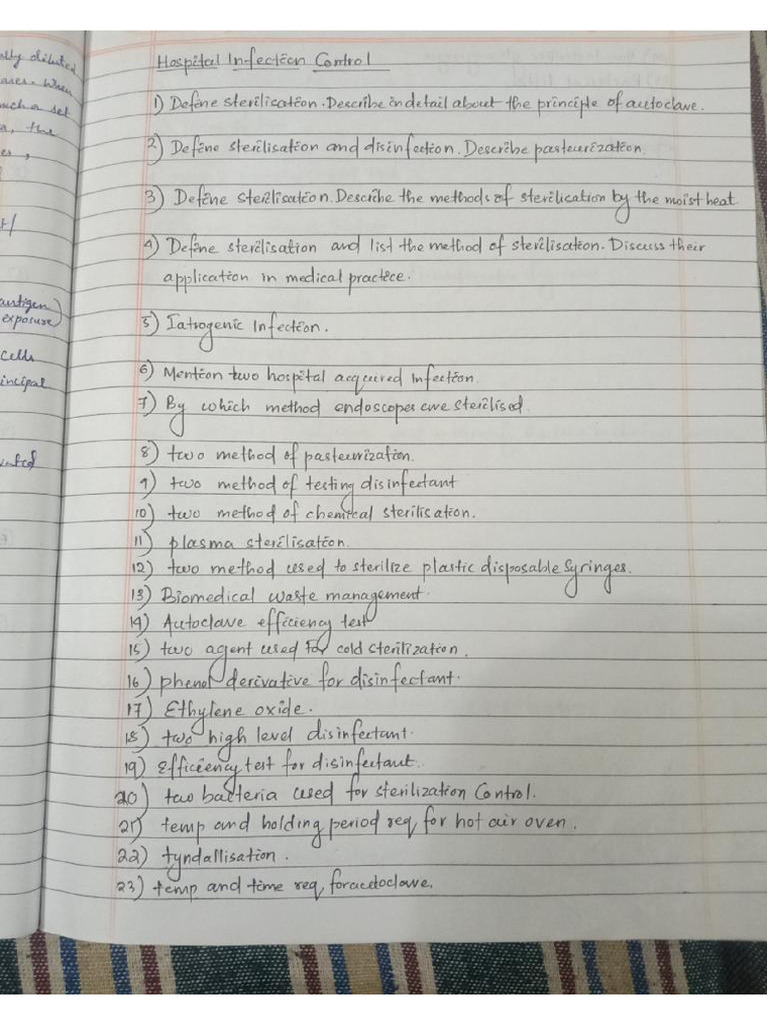 ally diluted
when
such a set
the
antigen)
exposure)
cells
incipal
Hospital Infection Control
1) Define sterilisation. Describe in detail about the principle of autoclave.
2) Define sterilisation and disinfection. Describe pasteurization.
3) Define sterilisation. Describe the methods of sterilication by the moist heat
4) Define sterilisation and list the method of sterilisation. Discuss their
application in medical practice.
5) Iatrogenic Infection.
6) Mention two hospital acquired Infection.
7) By which method endoscopes are sterilised.
8) two method of pasteurization.
9) two method of testing disinfectant
10) two method of chemical sterilisation.
11) plasma sterilisation.
12) two method used to sterilize plastic disposable Syringes.
13) Biomedical waste management.
14) Autoclave efficiency test
15) two agent used for cold sterilization.
16) phenol derivative for disinfectant.
17) Ethylene oxide.
18) two high level disinfectant.
19) Efficiency test for disinfectant.
20) two bacteria used for sterilization Control.
21) temp and holding period req, for hot air oven.
22) tyndallisation.
23) temp and time req, for autoclave.